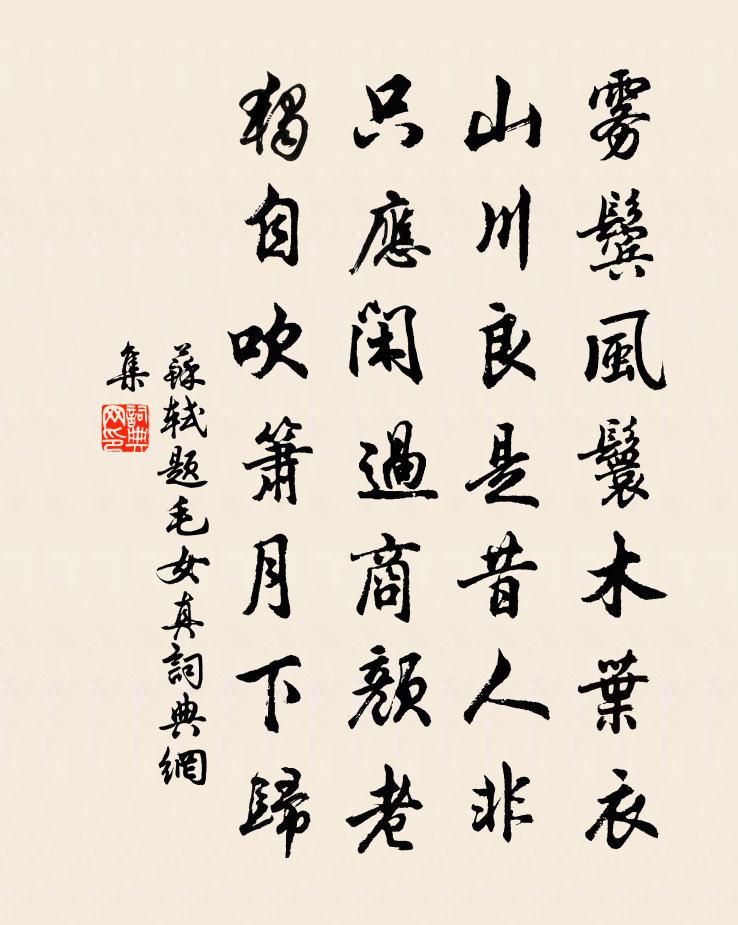 雾鬢風鬟木葉衣
山川良是昔人非
只應閑過商顏老
獨自吹簫月下歸
蘇軾題毛女真詞典網
集
詞典
网印